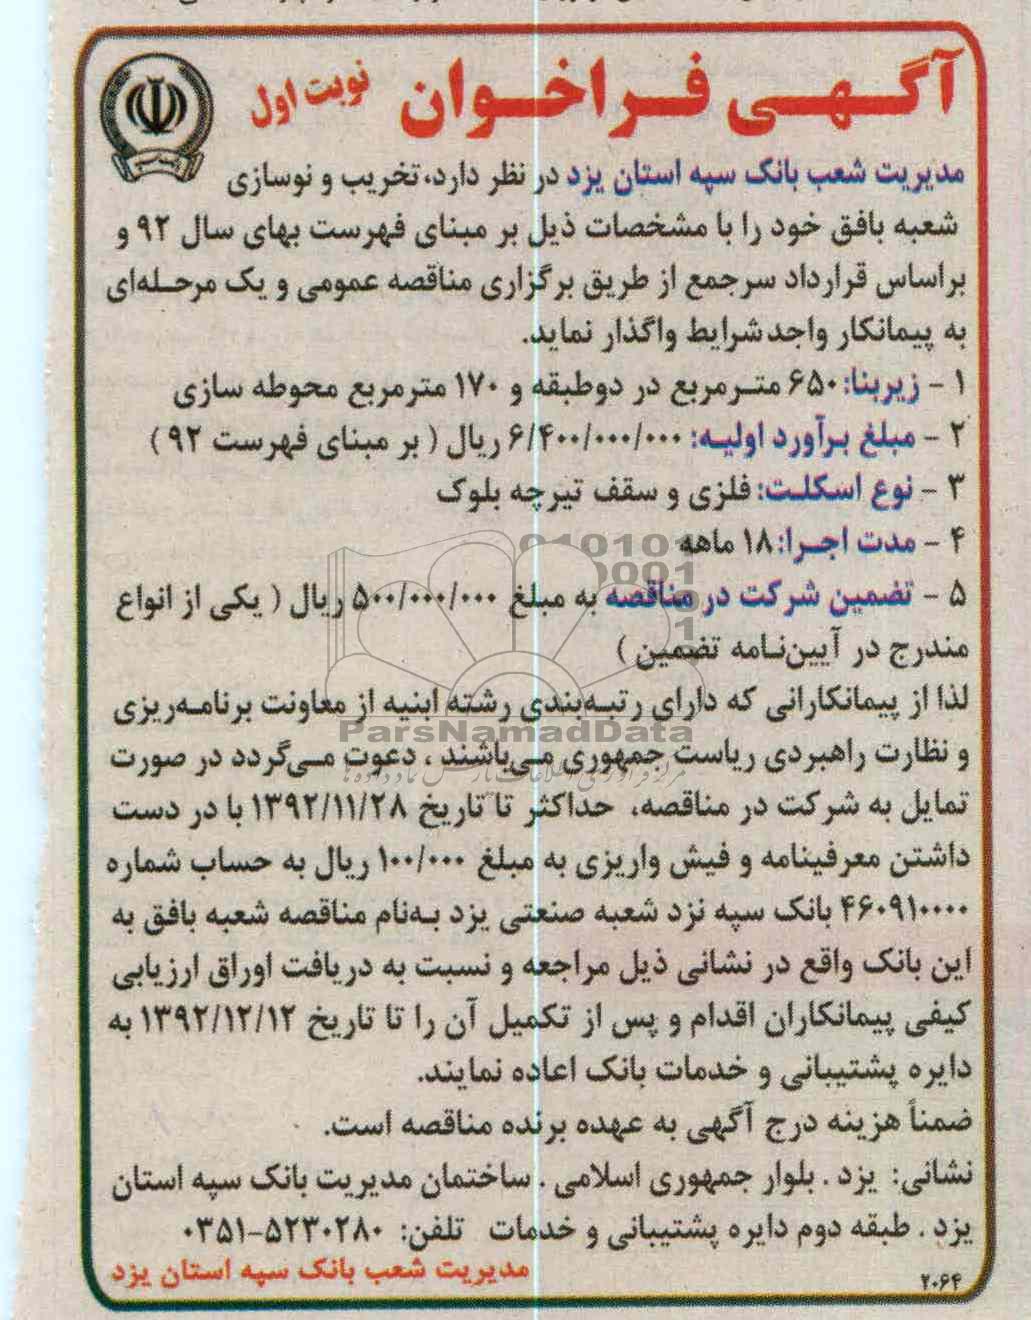 آگهی فراخوان نوبت اول
مدیریت شعب بانک سپه استان یزد در نظر دارد، تخریب و نوسازی
شعبه بافق خود را با مشخصات ذیل بر مبنای فهرست بهای سال ۹۲ و
براساس قرارداد سرجمع از طریق برگزاری مناقصه عمومی و یک مرحله‌ای
به پیمانکار واجد شرایط واگذار نماید.
۱ - زیربنا: ۶۵۰ مترمربع در دوطبقه و ۱۷۰ مترمربع محوطه سازی
۲ - مبلغ برآورد اولیه: ۶/۴۰۰/۰۰۰/۰۰۰ ریال ( بر مبنای فهرست ۹۲ )
۳ - نوع اسکلت: فلزی و سقف تیرچه بلوک
۴ - مدت اجرا: ۱۸ ماهه
۵ - تضمین شرکت در مناقصه به مبلغ ۵۰۰/۰۰۰/۰۰۰ ریال ( یکی از انواع
مندرج در آیین‌نامه تضمین )
لذا از پیمانکارانی که دارای رتبه‌بندی رشته ابنیه از معاونت برنامه‌ریزی
و نظارت راهبردی ریاست جمهوری می‌باشند ، دعوت می‌گردد در صورت
تمایل به شرکت در مناقصه، حداکثر تا تاریخ ۱۳۹۲/۱۱/۲۸ با در دست
داشتن معرفینامه و فیش واریزی به مبلغ ۱۰۰/۰۰۰ ریال به حساب شماره
۴۶۰۹۱۰۰۰۰ بانک سپه نزد شعبه صنعتی یزد به‌نام مناقصه شعبه بافق به
این بانک واقع در نشانی ذیل مراجعه و نسبت به دریافت اوراق ارزیابی
کیفی پیمانکاران اقدام و پس از تکمیل آن را تا تاریخ ۱۳۹۲/۱۲/۱۲ به
دایره پشتیبانی و خدمات بانک اعاده نمایند.
ضمناً هزینه درج آگهی به عهده برنده مناقصه است.
نشانی: یزد . بلوار جمهوری اسلامی . ساختمان مدیریت بانک سپه استان
یزد . طبقه دوم دایره پشتیبانی و خدمات تلفن: ۵۲۳۰۲۸۰-۰۳۵۱
مدیریت شعب بانک سپه استان یزد
۲۰۶۴
ParsNamadData